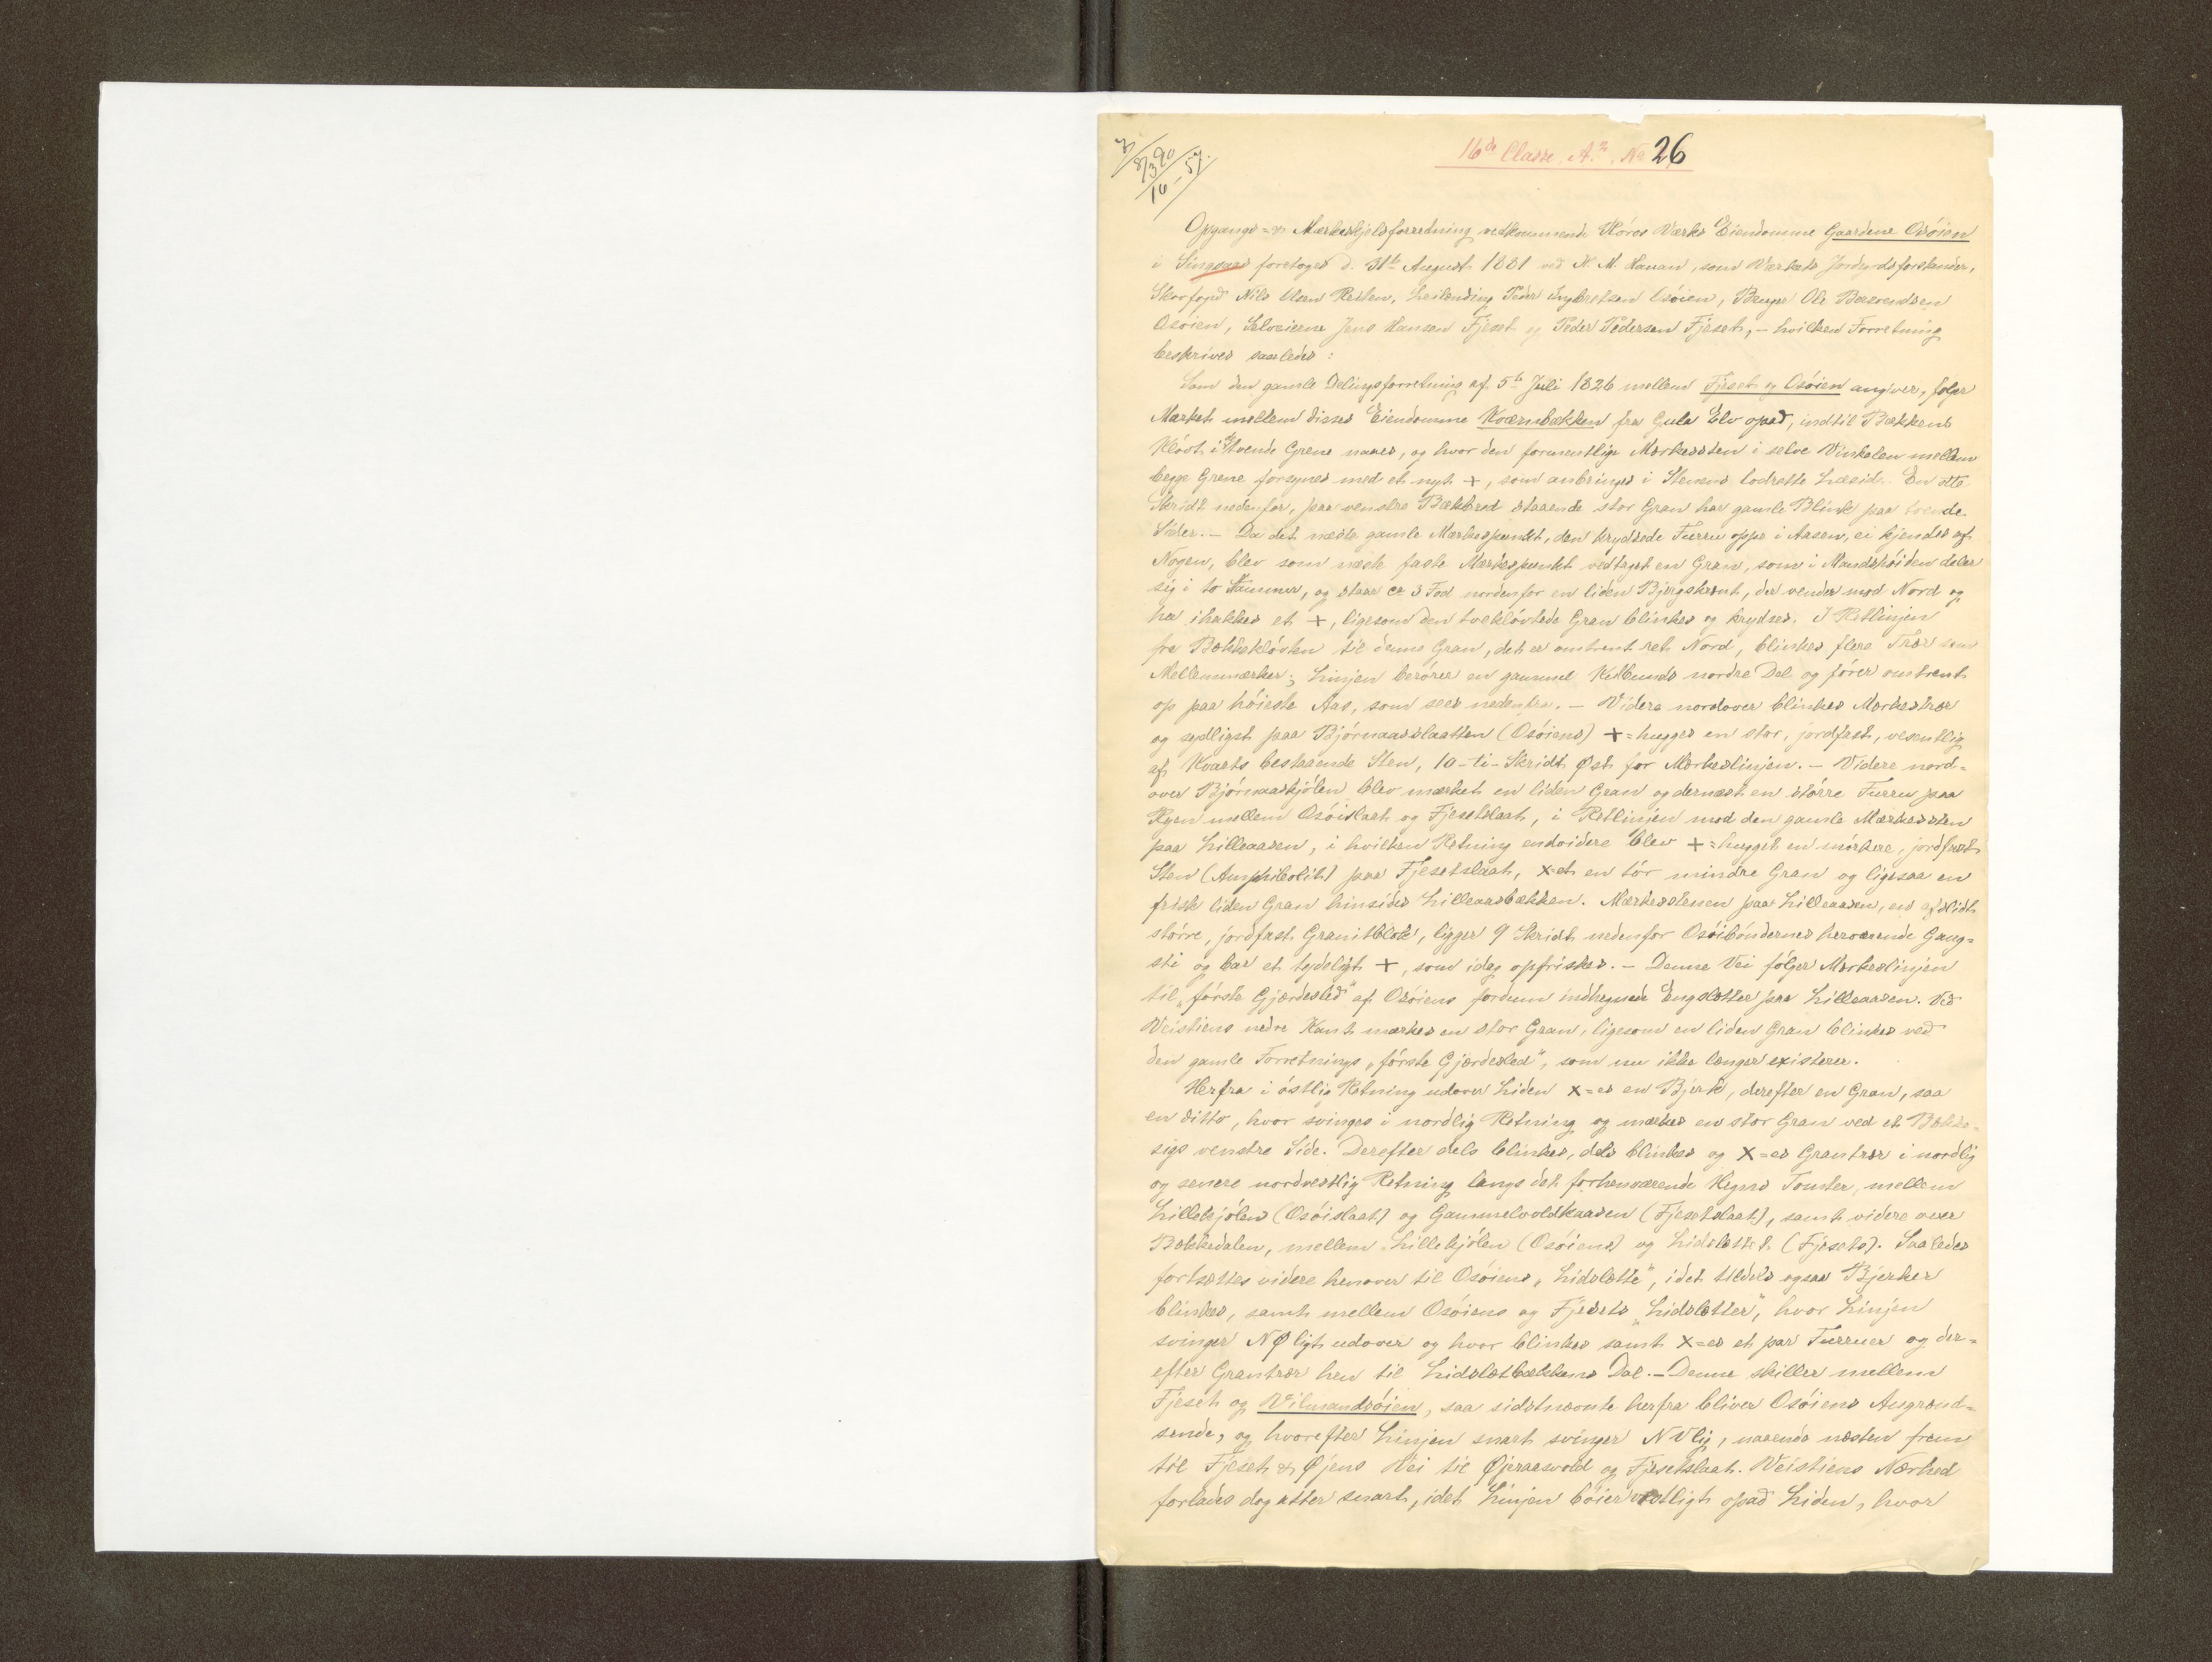 16de Classe. A.2. No 26
8/3 90
10 - 57.
Opgangs- & Mærkeskjelsforretning vedkommende Røros Værks Eiendomme Gaardene Osøien
i Singsaas foretoges d. 31te August 1881 ved H. M. Hauan, som Værkets Jordgodsforstander,
Skovfoged Nils Olsen Reiten, Leilending Peder Ingbretsen Osøien, Bruger Ole Berendsen
Osøien, Selveierne Jens Hansen Fjeset og Peder Pedersen Fjeset, – hvilken Forretning
beskrives saaledes:
Som den gamle Delingsforretning af 5te Juli 1826 mellem Fjeset og Osøien angiver, følger
Mærket mellem disses Eiendomme Kværnbækken fra Gula Elv opad, indtil Bækkens
Kløvt i tvende Grene naaes, og hvor den formentlige Mærkessten i selve Vinkelen mellem
begge Grene forsynes med et nyt +, som anbringes i Stenens lodrette Læside. En otte
Skridt nedenfor, paa venstre Bækbred staaende stor Gran har gamle Blink paa tvende
Sider. – Da det næste gamle Mærkespunkt, den krydsede Furru oppe i Aasen, ei kjendes af
Nogen, blev som næste faste Mærkespunkt vedtaget en Gran, som i Mandshøiden deler
sig i to Stammer, og staar ca 3 Fod nordenfor en liden Bjergskrent, der vender mod Nord og
her ihakkes et +, ligesom den tvekløvtede Gran blinkes og krydses. I Retlinjen
fra Bækkekløvten til denne Gran, det er omtrent ret Nord, blinkes flere Trær som
Mellemmærker; Linjen berører en gammel Kulbunds nordre Del og fører omtrent
op paa høieste Aas, som sees nedenfra. – Videre nordover blinkes Mærkestrær
og sydligst paa Bjørnaasslaatten (Osøiens) +=hugges en stor, jordfast, vesentlig
af Kvarts bestaaende Sten, 10-ti-Skridt Øst for Mærkeslinjen. – Videre nord-
over Bjørnaaskjølen blev mærket en liden Gran og dernæst en større Furru paa
Ryen mellem Osøislaat og Fjesetslaat, i Retlinjen mod den gamle Mærkessten
paa Lilleaasen, i hvilken Retning endvidere blev +=hugget en mørkere, jordfast
Sten (Amphibolit) paa Fjesetslaat, x=et en tør mindre Gran og ligesaa en
frisk liden Gran hinsides Lilleaasbækken. Mærkesstenen paa Lilleaasen, en afslidt
større, jordfast Granitblok, ligger 9 Skridt nedenfor Osøibøndernes herværende Gang-
sti og bær et tydeligt +, som idag opfriskes. – Denne Vei følger Mærkeslinjen
til „første Gjærdesled“ af Osøiens fordum indhegnede Engsletter paa Lilleaasen. Ved
Veistiens nedre Kant mærkes en stor Gran, ligesom en liden Gran blinkes ved
den gamle Forretnings „første Gjærdesled“, som nu ikke længer existerer.
Herfra i østlig Retning udover Liden x=es en Bjerk, derefter en Gran, saa
en ditto, hvor svinges i nordlig Retning og mærkes en stor Gran ved et Bække-
sigs venstre Side. Derefter dels blinkes, dels blinkes og x=es Grantrær i nordlig
og senere nordvestlig Retning langs det forhenværende Hegns Tomter, mellem
Lillekjølen (Osøislaat) og Gammelvoldkaasen (Fjesetslaat), samt videre over
Bækkedalen, mellem Lillekjølen (Osøiens) og Lidslettet (Fjesets). Saaledes
fortsættes videre henover til Osøiens „Lidslette“, idet tildels ogsaa Bjerker
blinkes, samt mellem Osøiens og Fjesets „Lidsletter“, hvor Linjen
svinger NØligt udover og hvor blinkes samt x=es et par Furruer og der-
efter Grantrær hen til Lidsletbækkens Dal. – Denne skiller mellem
Fjeset og Wilmandsøien, saa sidstnævnte herfra bliver Osøiens Angrænd-
sende, og hvorefter Linjen snart svinger NVlig, naaende næsten frem
til Fjeset & Øjens Vei til Øjeraasvold og Fjesetslaat. Veistiens Nærhed
forlades dog atter snart, idet Linjen bøier vestligt opad Liden, hvor